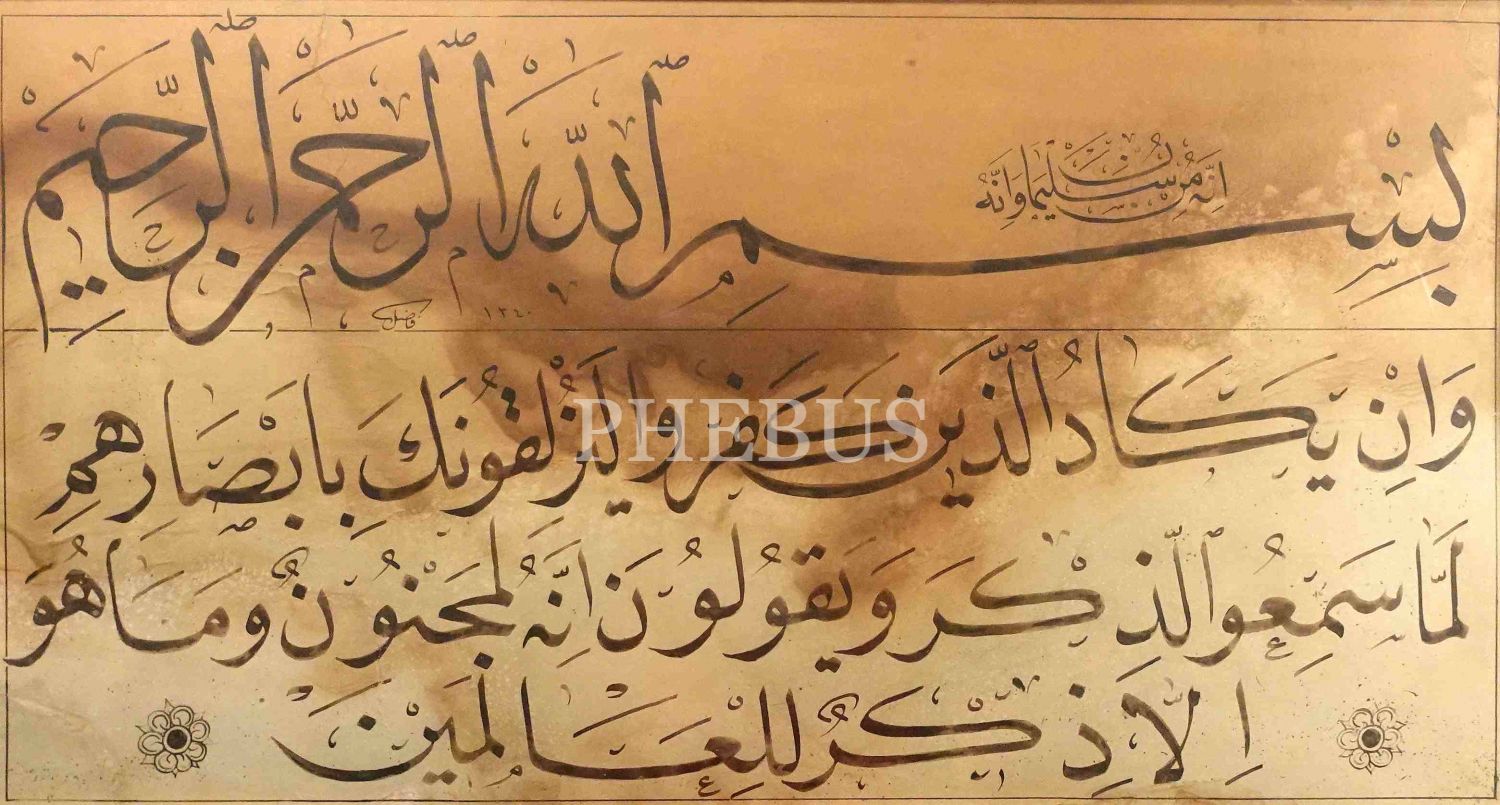 إنه من سليمان وإنه
بِسْمِ اللّٰهِ الرَّحْمٰنِ الرَّحِيمِ
فاضل ١٣٤٠
وَاِنْ يَكَادُ الَّذ۪ينَ كَفَرُوا لَيُزْلِقُونَكَ بِاَبْصَارِهِمْ
لَمَّا سَمِعُوا الذِّكْرَ وَيَقُولُونَ اِنَّهُ لَمَجْنُونٌ وَمَا هُوَ
اِلَّا ذِكْرٌ لِلْعَالَمِينَ
PHEBUS